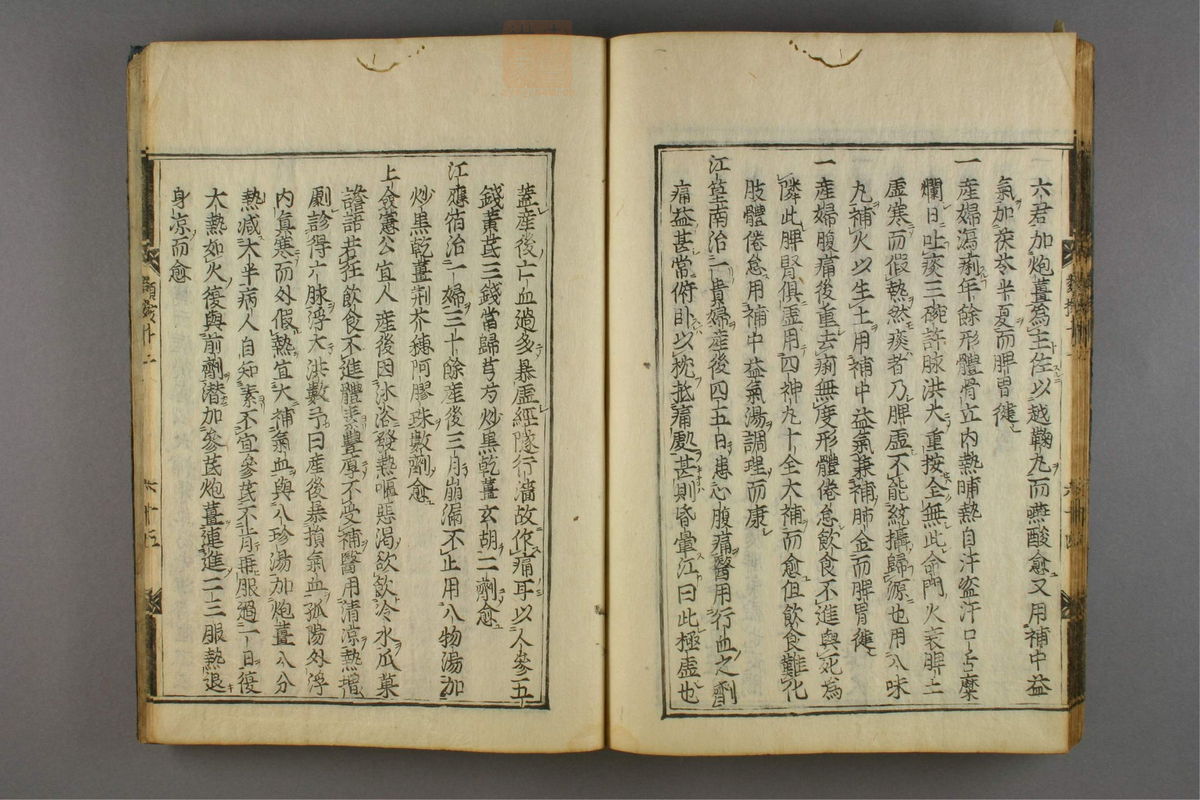 六君加炮薑為主佐以越鞠丸而嚥酸愈又用補中益
氣加茯苓半夏而脾胃健
一産婦瀉痢年餘形體骨立内熱晡熱自汗盗汗口舌糜
爛日吐痰三碗許脉洪大重按全無此命門火衰脾土
虚寒而假熱然痰者乃脾虚不能統攝歸源也用八味
丸補火以生土用補中益氣兼補肺金而脾胃健
一産婦腹痛後重去痢無度形體倦怠飲食不進與死為
隣此脾腎俱虚用四神丸十全大補而愈但飲食難化
肢體倦怠用補中益氣湯調理而康
江篁南治一貴婦産後四五日患心腹痛醫用行血之劑
痛益甚常俯卧以枕抵痛處甚則昏暈江曰此極虚也
蓋産後亡血過多暴虚經隧行濇故作痛耳以人參五
錢黄芪三錢當歸芎芍炒黒乾薑玄胡二劑愈
江應宿治一婦三十餘産後三月崩漏不止用八物湯加
炒黒乾薑荆芥穂阿膠珠數劑愈
上舎憲公宜人産後因沐浴發熱嘔惡渇欲飲冷水瓜菓
譫語若狂飲食不進體素豐厚不受補醫用清凉熱増
劇診得六脉浮大洪數予曰産後暴損氣血孤陽外浮
内真寒而外假熱宜大補氣血與八珍湯加炮薑八分
熱减大半病人自知素不宜參芪不肯再服過一日復
大熱如火復與前劑潜加參芪炮薑連進二三服熱退
身凉而愈
類案十二
六十三